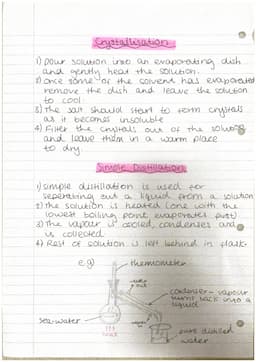 Crystallisation
1) pour solution into an evaporating dish
and gently heat the solution.
2) once some of the solvent has evaporated
remove the dish and leave the solution
to cool
3) The salt should start to form crystals
as it becomes insoluble
4) Filter the crystals out of the solution
and leave them in a warm place
to dry.
Simple Distillation
1) simple distillation is used for
seperating out a liquid from a solution
2) The solution is heated (one with the
lowest boiling point evaporates first)
3) The vapour is cooled, condenses and
is collected
4) Rest of solution is left behind in flask
e.g)
thermometer
water
out
condenser - vapour
turns back into a
liquid
sea-water
heat
water
pure distilled
water